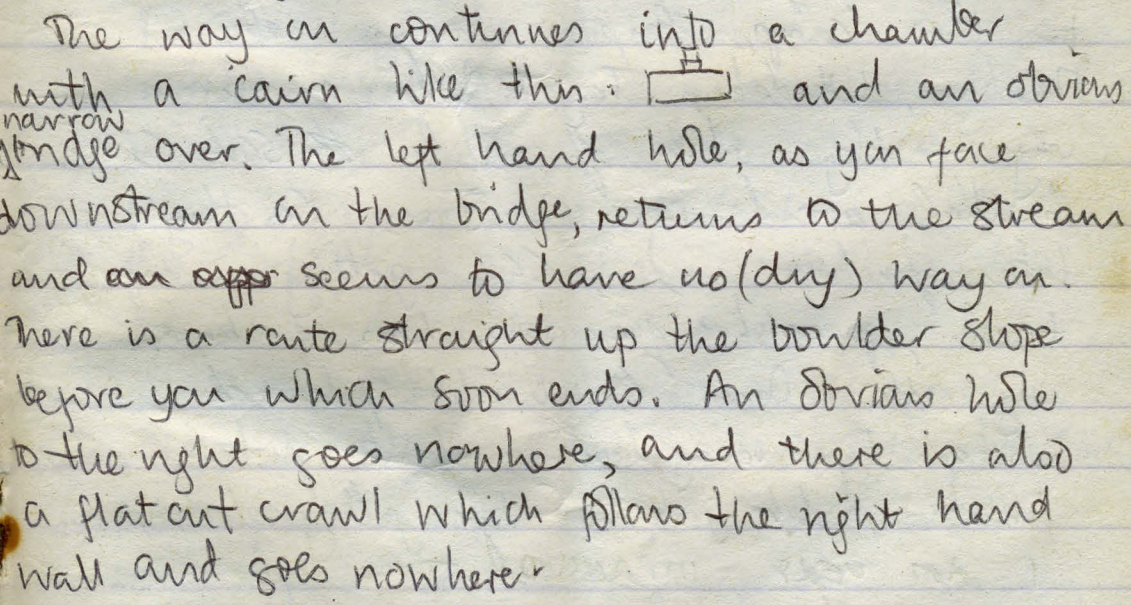 The way on continues into a chamber
with a cairn like this: and an obvious
narrow
bridge over. The left hand hole, as you face
downstream on the bridge, returns to the stream
and seems to have no (dry) way on.
There is a route straight up the boulder slope
before you which soon ends. An obvious hole
to the right goes nowhere, and there is also
a flat out crawl which follows the right hand
wall and goes nowhere.